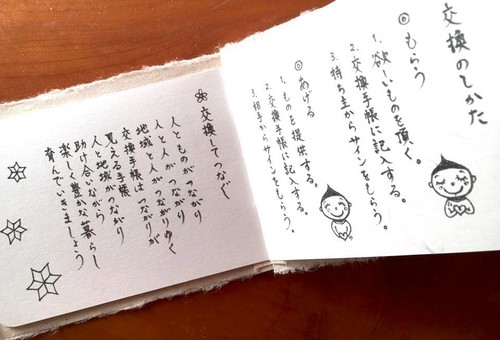 交換のしかた
◎もらう
1.欲しいものを頂く。
2.交換手帳に記入する。
3.持ち主からサインをもらう。
◎あげる
1.ものを提供する。
2.交換手帳に記入する。
3.相手からサインをもらう。
交換してつなぐ
人とものがつながり
人と人がつながり
地域と人がつながりゆく
交換手帳はつながりが
見える手帳
人と地域がつながり
助け合いながら
楽しく豊かな暮らし
育んでいきましょう